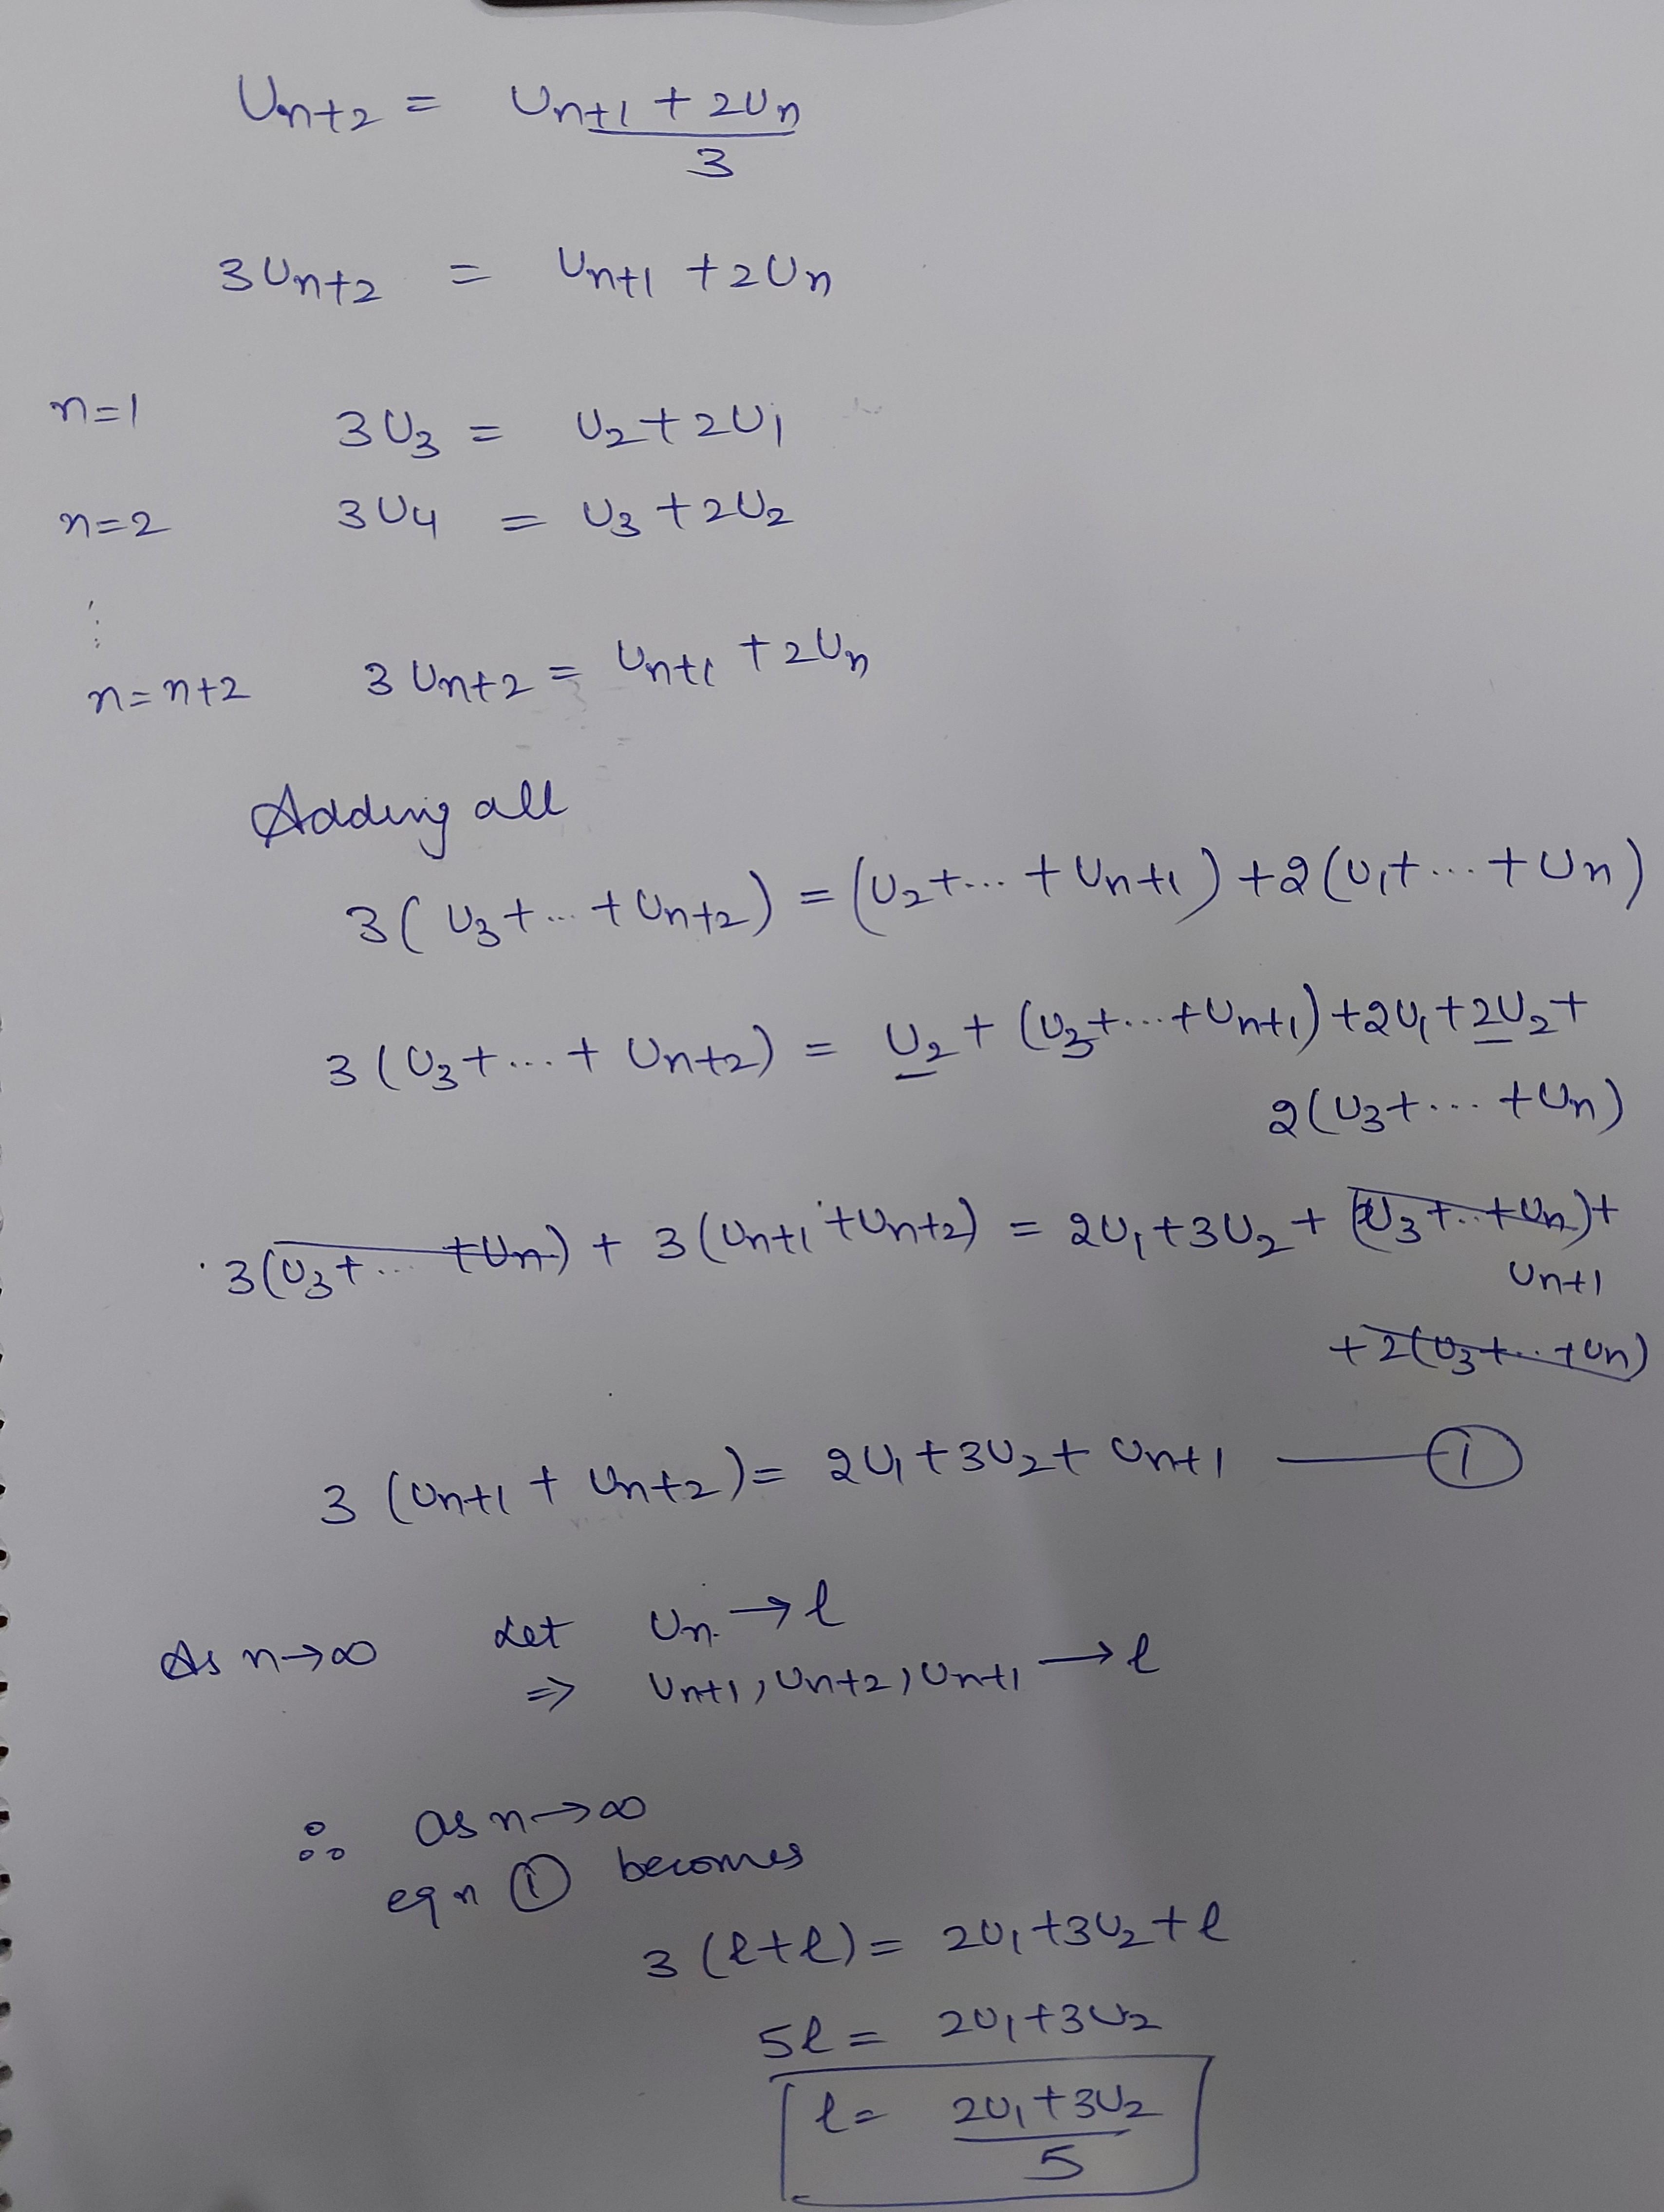 Un+2 = Un+1 + 2Un / 3
3Un+2 = Un+1 + 2Un
n=1 3U3 = U2 + 2U1
n=2 3U4 = U3 + 2U2
⋮
n=n+2 3Un+2 = Un+1 + 2Un
Adding all
3(U3+...+Un+2) = (U2+...+Un+1)+2(U1+...+Un)
3(U3+...+Un+2) = U2 + (U3+...+Un+1)+2U1+2U2+
2(U3+...+Un)
3(U3+...+Un) + 3(Un+1+Un+2) = 2U1+3U2+(U3+..+Un)+
Un+1
+2(U3+..+Un)
3(Un+1 + Un+2) = 2U1+3U2+Un+1 — ①
As n→∞ Let Un→l
⇒ Un+1, Un+2, Un+1 → l
∴ as n→∞
eqn ① becomes
3(l+l) = 2U1+3U2+l
5l = 2U1+3U2
l = 2U1+3U2 / 5